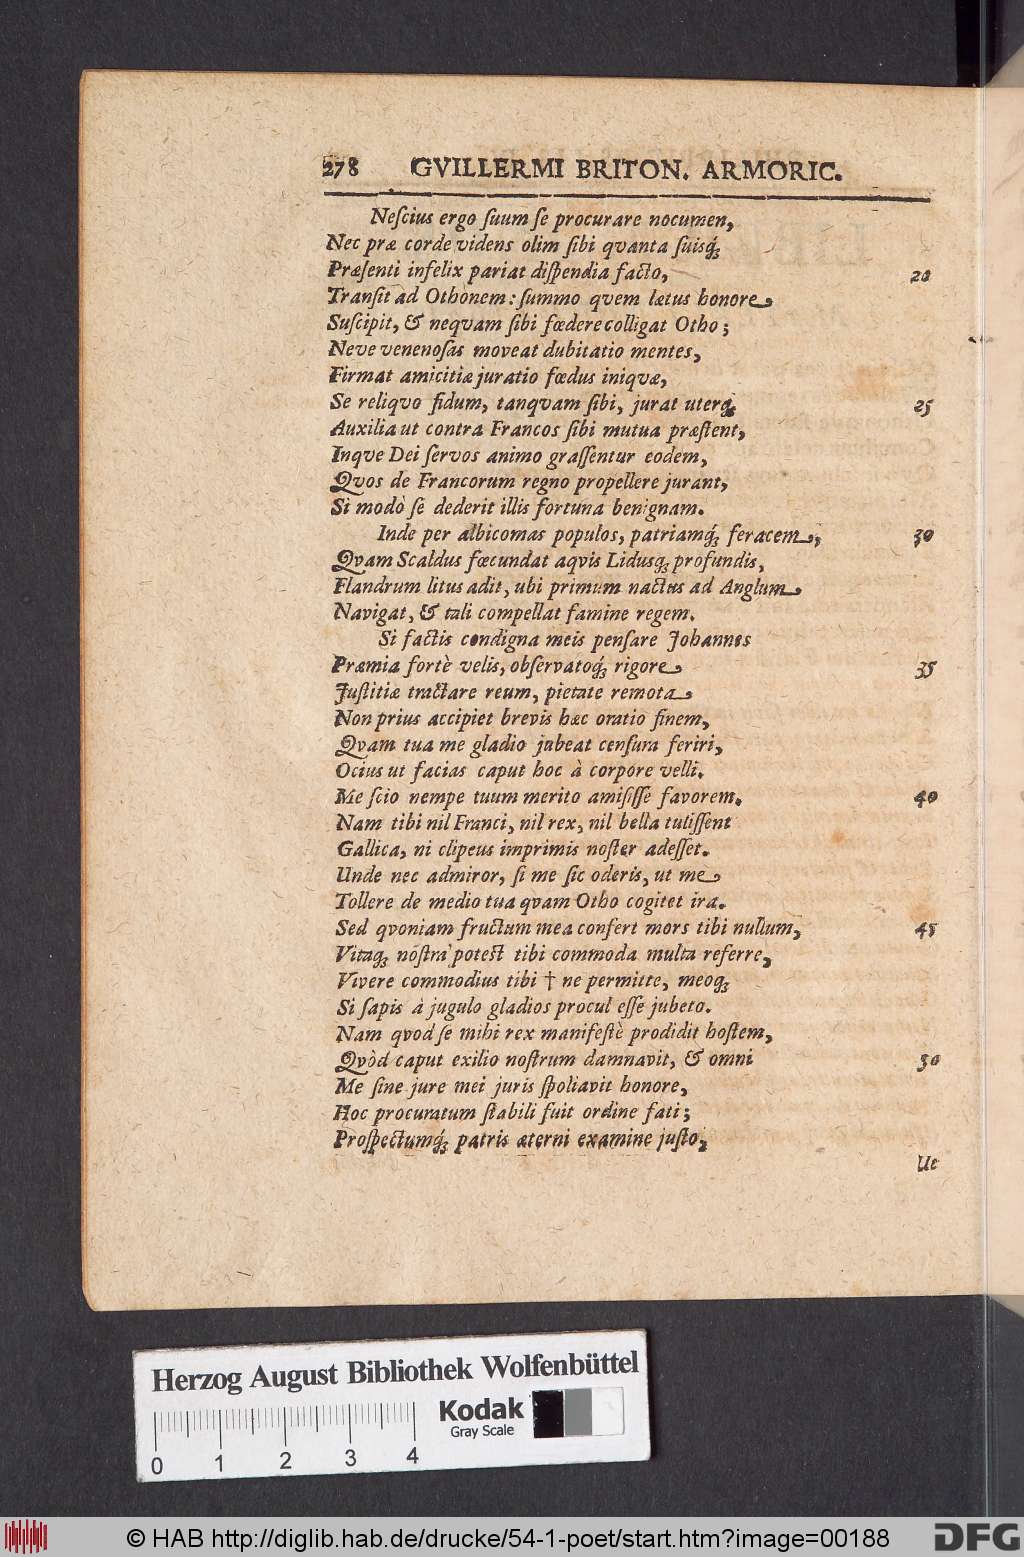 278 GVILLERMI BRITON. ARMORIC.
Neſcius ergo ſuum ſe procurare nocumen,
Nec præ corde videns olim ſibi qvanta ſuisq́;
Præſenti infelix pariat diſpendia facto, 20
Tranſit ad Othonem: ſummo qvem lætus honore
Suſcipit, & neqvam ſibi fœdere colligat Otho;
Neve venenoſas moveat dubitatio mentes,
Firmat amicitiæ juratio fœdus iniquæ,
Se reliqvo fidum, tanqvam ſibi, jurat uterq; 25
Auxilia ut contra Francos ſibi mutua præſtent,
Inqve Dei ſervos animo graſſentur eodem,
Qvos de Francorum regno propellere jurant,
Si modò ſe dederit illis fortuna benignam.
Inde per albicomas populos, patriamq́; feracem, 30
Qvam Scaldus fœcundat aqvis Lidusq; profundis,
Flandrum litus adit, ubi primum nactus ad Anglum
Navigat, & tali compellat famine regem.
Si factis condigna meis penſare Johannes
Præmia fortè velis, obſervatoq́; rigore 35
Juſtitiæ tractare reum, pietate remota
Non prius accipiet brevis hæc oratio finem,
Qvam tua me gladio jubeat cenſura feriri,
Ocius ut facias caput hoc à corpore velli.
Me ſcio nempe tuum merito amiſiſſe favorem. 40
Nam tibi nil Franci, nil rex, nil bella tuliſſent
Gallica, ni clipeus imprimis noſter adeſſet.
Unde nec admiror, ſi me ſic oderis, ut me
Tollere de medio tua qvam Otho cogitet ira.
Sed qvoniam fructum mea confert mors tibi nullum, 45
Vitaq; noſtra poteſt tibi commoda multa referre,
Vivere commodius tibi † ne permitte, meoq;
Si ſapis à jugulo gladios procul eſſe jubeto.
Nam qvod ſe mihi rex manifeſtè prodidit hoſtem,
Qvòd caput exilio noſtrum damnavit, & omni 50
Me ſine jure mei juris ſpoliavit honore,
Hoc procuratum ſtabili fuit ordine fati;
Proſpectumq́; patris æterni examine juſto,
Ut
Herzog August Bibliothek Wolfenbüttel
Kodak
Gray Scale
0 1 2 3 4
© HAB http://diglib.hab.de/drucke/54-1-poet/start.htm?image=00188
DFG